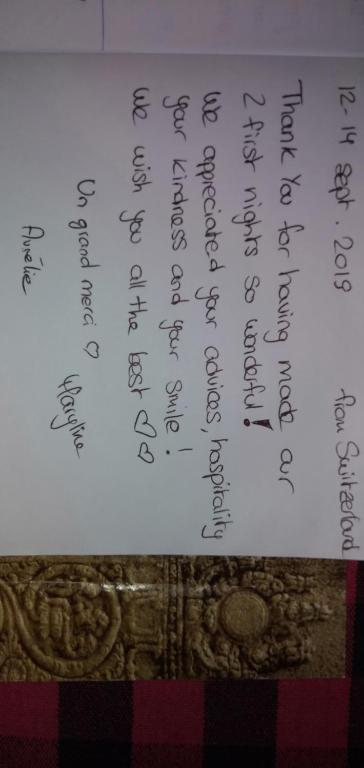 12-14 sept. 2019 from Switzerland
Thank you for having made our
2 first nights so wonderful!
We appreciated your advices, hospitality
your kindness and your smile!
We wish you all the best ♡♡
Un grand merci ♡
Aurélie Maryline